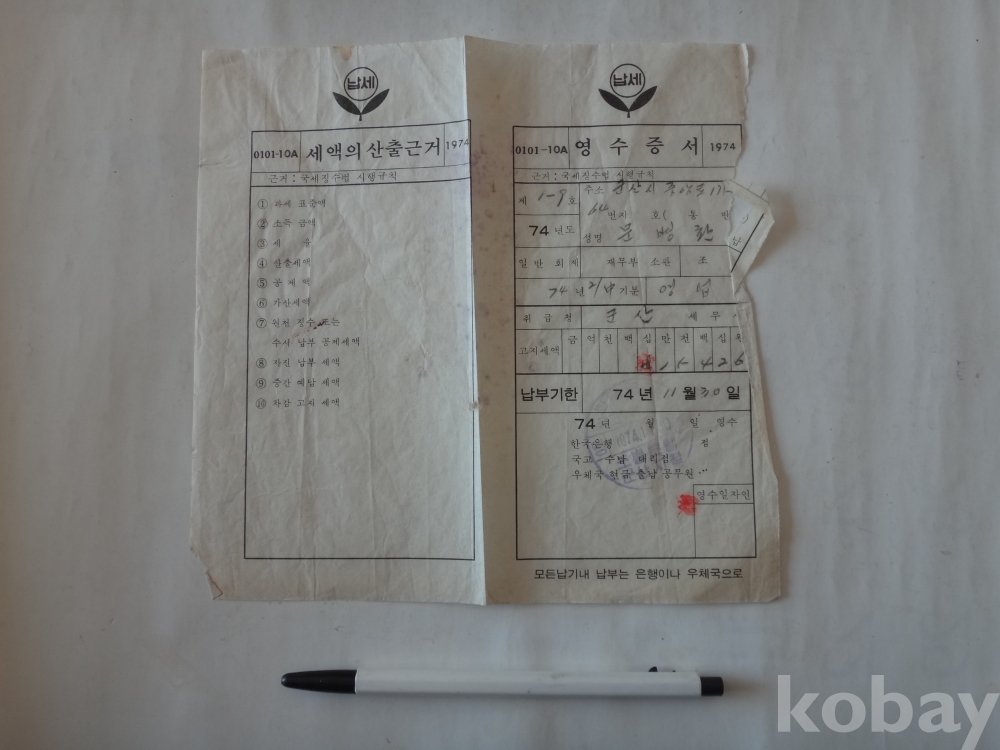 납세
0101-10A 세액의 산출근거 1974
근거: 국세징수법 시행규칙
① 과세 표준액
② 소득 금액
③ 세 율
④ 산출세액
⑤ 공제액
⑥ 가산세액
⑦ 원천 징수 또는
수시 납부 공제세액
⑧ 자진 납부 세액
⑨ 중간 예납 세액
⑩ 차감 고지 세액
납세
0101-10A 영수증서 1974
근거: 국세징수법 시행규칙
제 1-9 호 주소 군산시
64 번지 호( 통 반
74 년도 성명 문
일반회계 재무부 소관 조
74 년 기분 영업
취급청 군산 세무
고지세액 금 억 천 백 십 만 천 백 십 원
15426
납부기한 74 년 11 월 30 일
74 년 월 일 영수
한국은행 점
국고 수납 대리점
우체국 현금 출납 공무원
영수일자인
모든납기내 납부는 은행이나 우체국으로
kobay